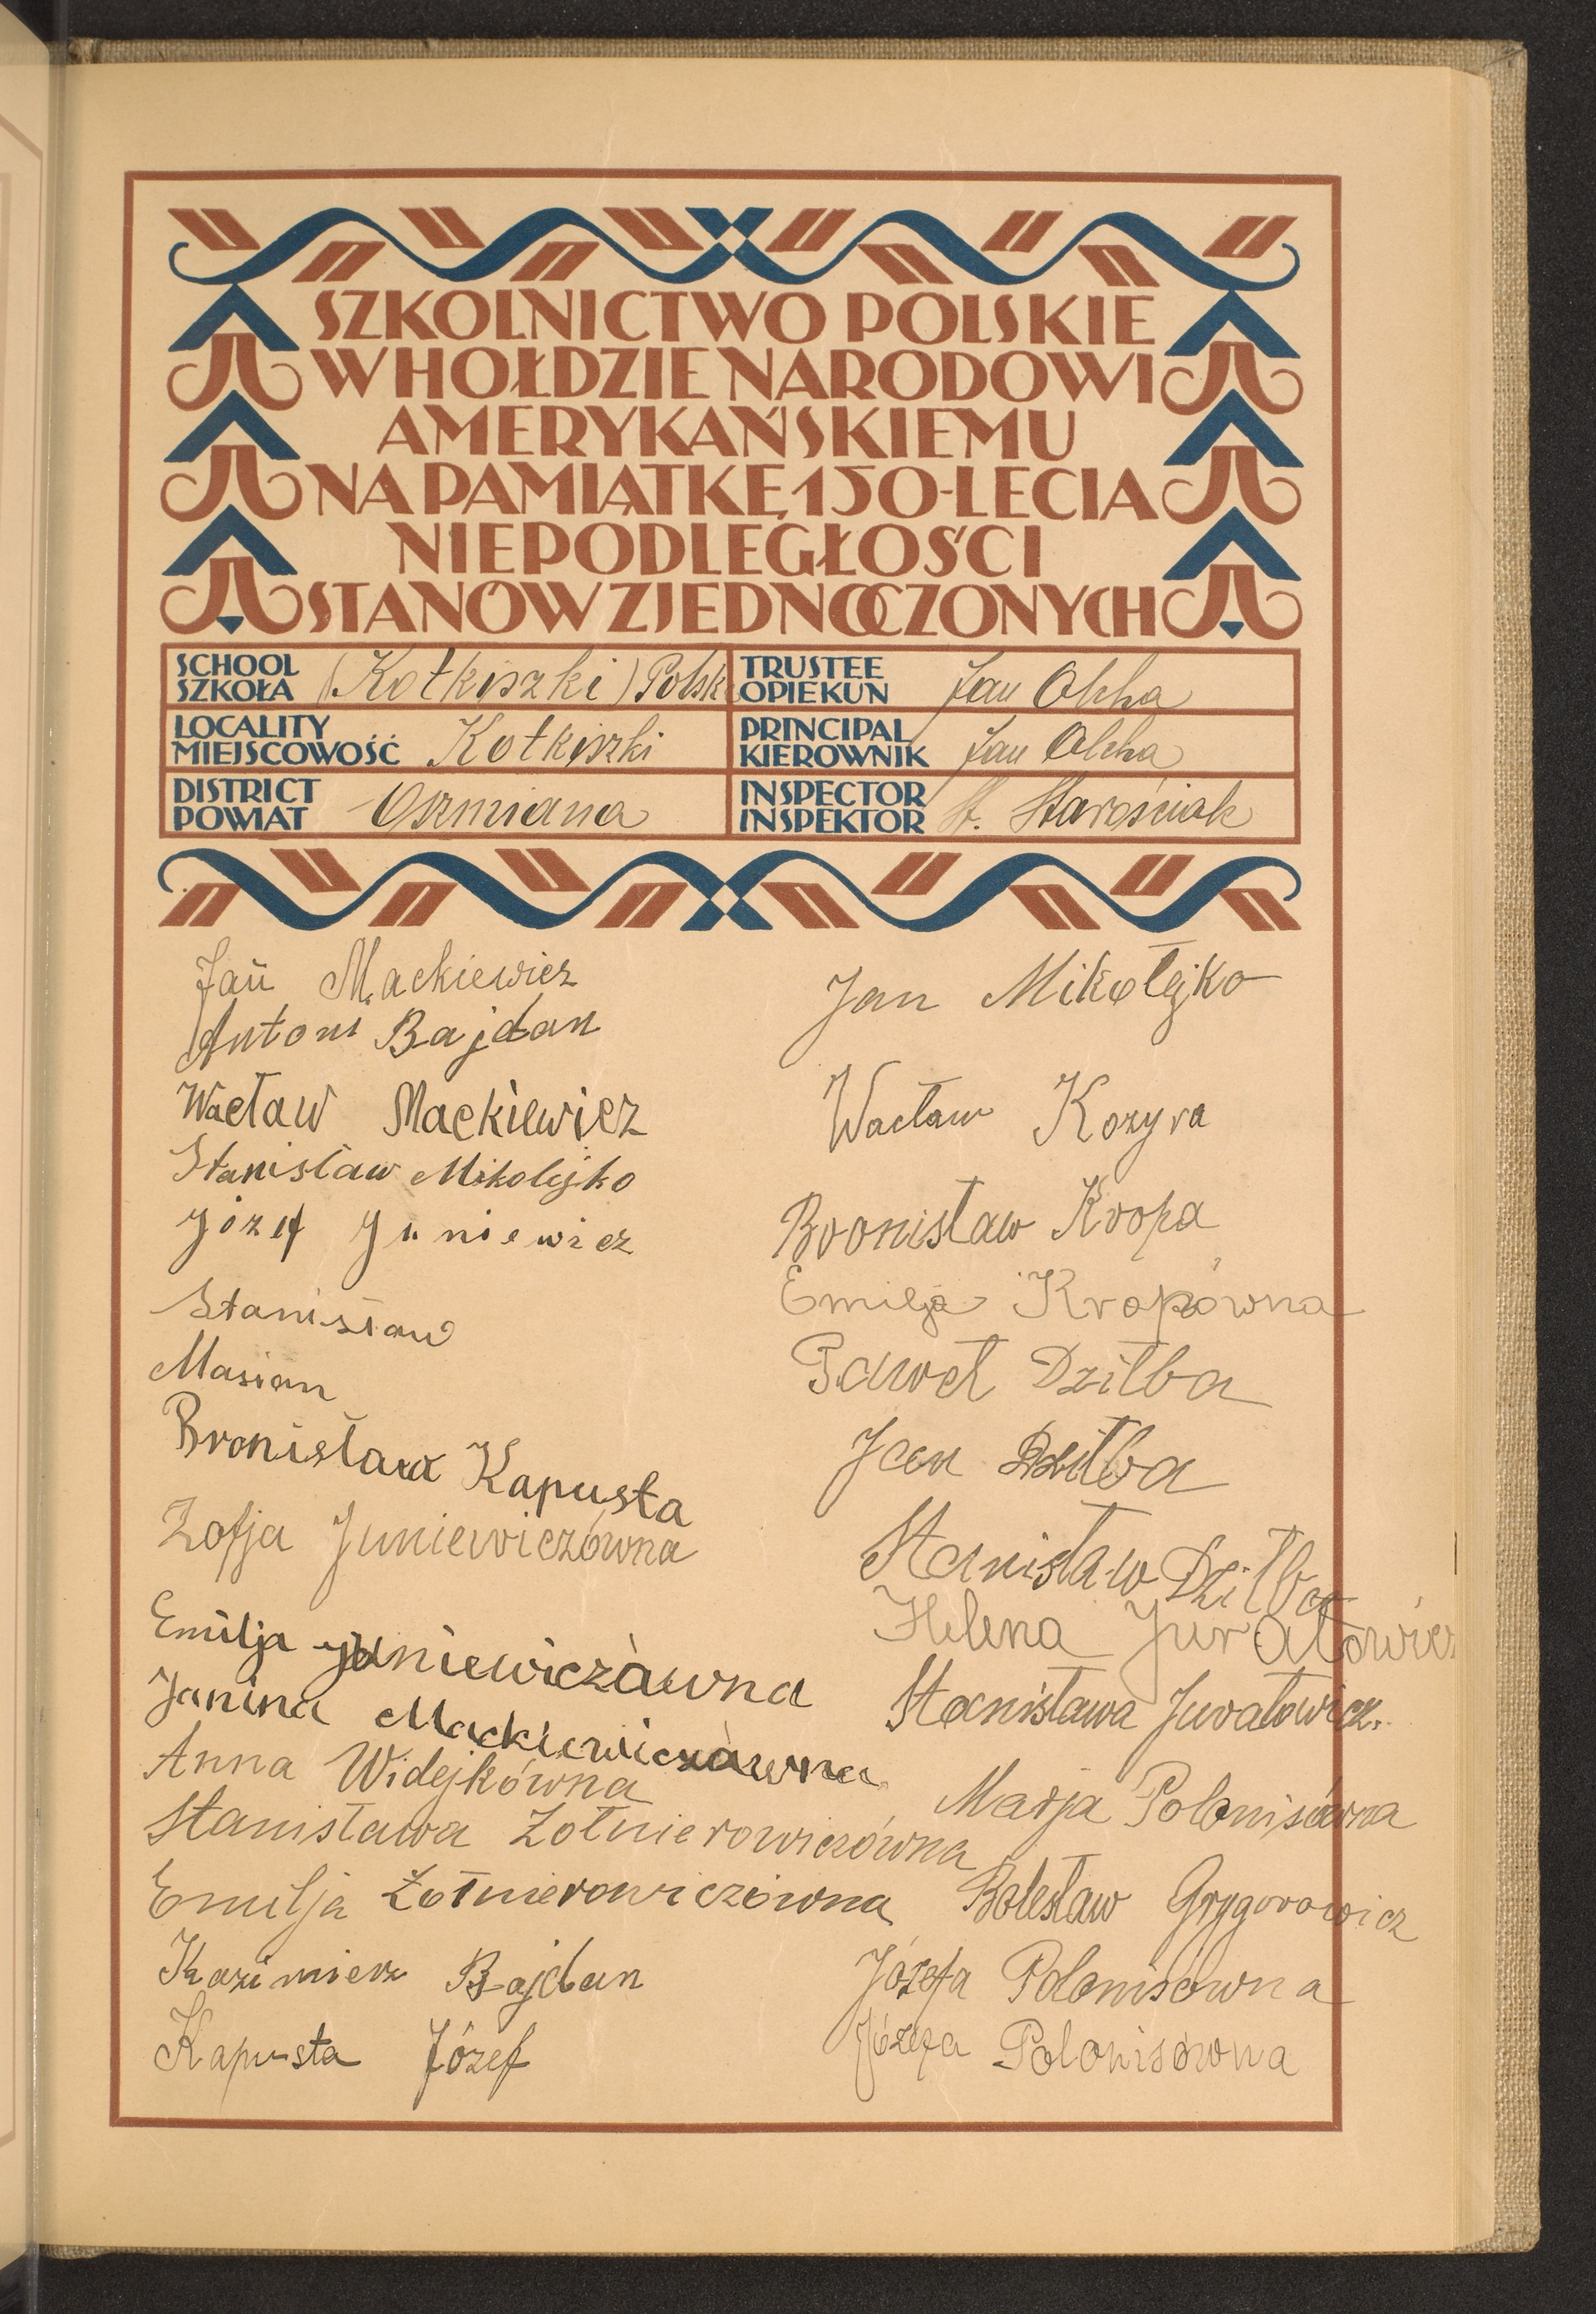 SZKOLNICTWO POLSKIE
W HOŁDZIE NARODOWI
AMERYKAŃSKIEMU
NA PAMIĄTKĘ 150-LECIA
NIEPODLEGŁOŚCI
STANÓW ZJEDNOCZONYCH
SCHOOL
SZKOŁA (Kotkiszki) Polsk
TRUSTEE
OPIEKUN Jan Olcha
LOCALITY
MIEJSCOWOŚĆ Kotkiszki
PRINCIPAL
KIEROWNIK Jan Olcha
DISTRICT
POWIAT Oszmiana
INSPECTOR
INSPEKTOR St. Starościak
Jan Mackiewicz
Antoni Bajdan
Wacław Mackiewicz
Stanisław Mikolejko
Józef Juniewicz
Stanisław
Masian
Bronisława Kapusta
Zofja Juniewiczówna
Emilja Juniewiczówna
Janina Mackiewiczówna
Anna Widejkówna
Stanisława Żołnierowiczówna
Emilja Żołnierowiczówna
Kazimierz Bajdan
Kapusta Józef
Jan Mikołejko
Wacław Kozyra
Bronisław Kropa
Emilja Kropówna
Paweł Dziłba
Jan Dziłba
Stanisław Dziłba
Helena Juratowicz
Stanisława Juratowicz.
Marja Polonisówna
Bolesław Grygorowicz
Józefa Polonisówna
Józefa Polonisówna